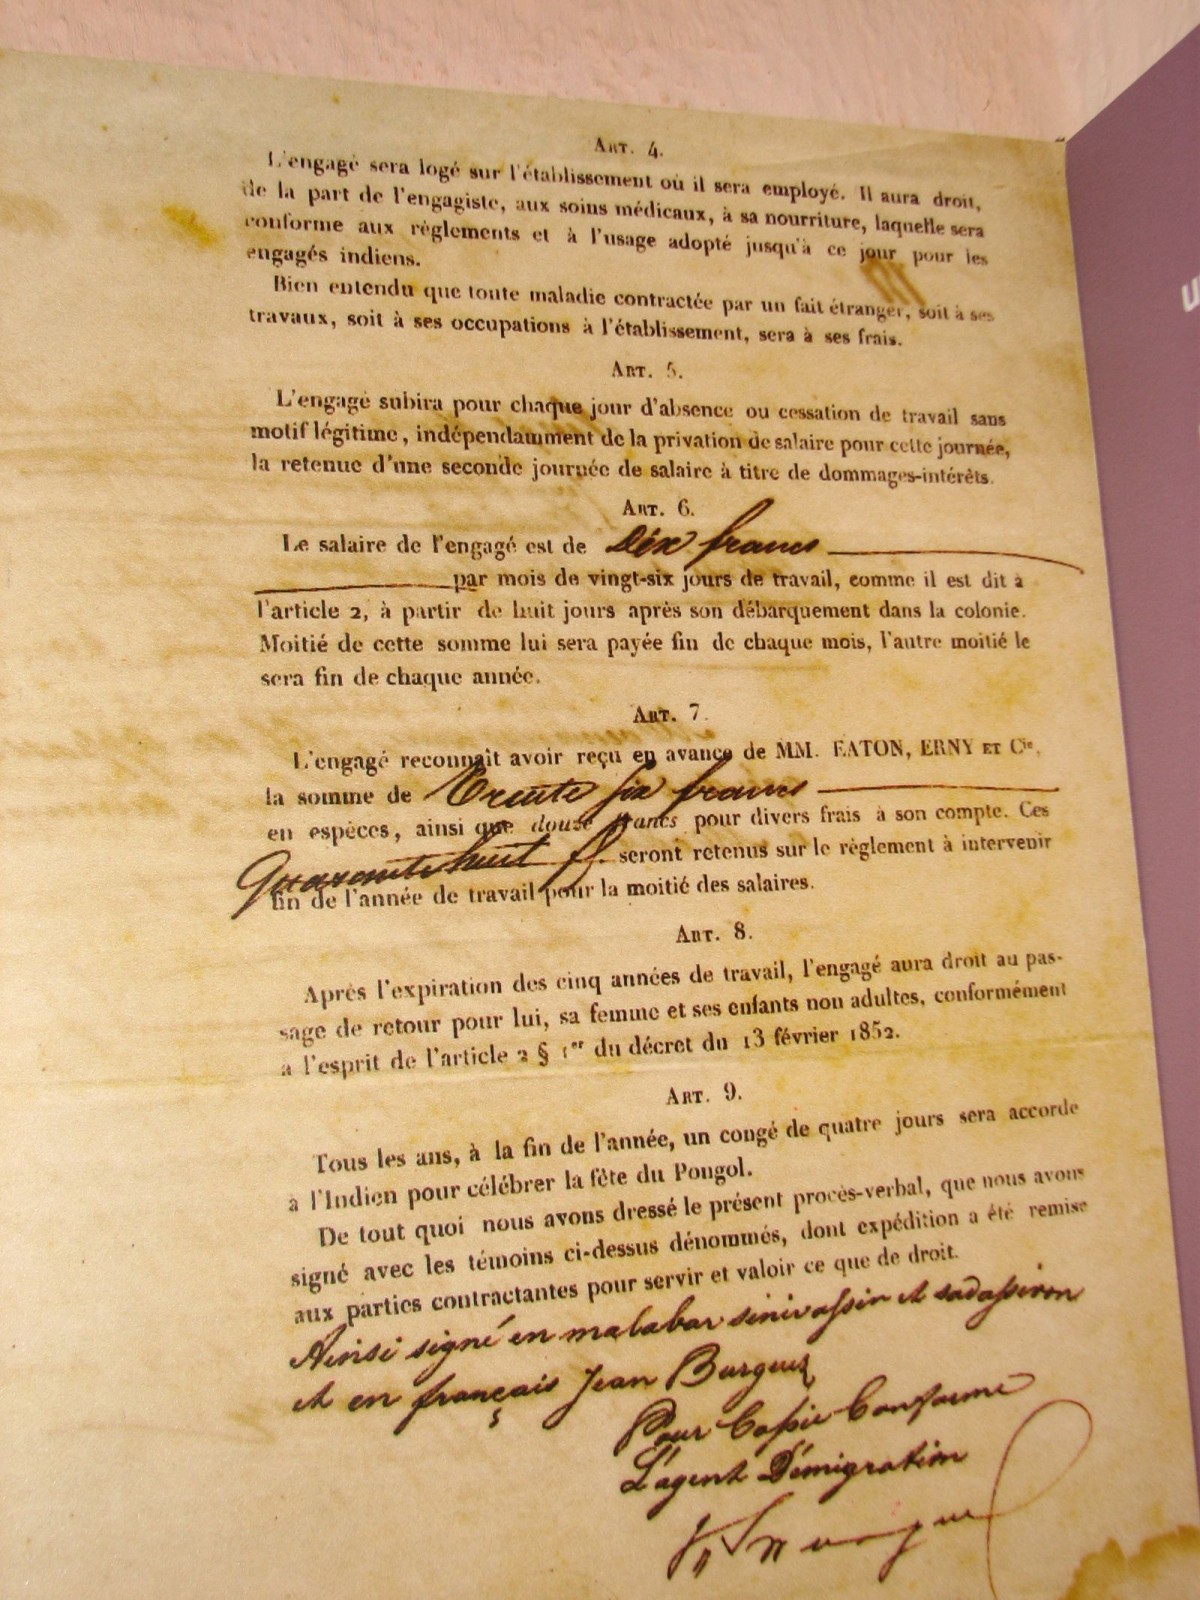 ART. 4.
L'engagé sera logé sur l'établissement où il sera employé. Il aura droit,
de la part de l'engagiste, aux soins médicaux, à sa nourriture, laquelle sera
conforme aux règlements et à l'usage adopté jusqu'à ce jour pour les
engagés indiens.
Bien entendu que toute maladie contractée par un fait étranger, soit à ses
travaux, soit à ses occupations à l'établissement, sera à ses frais.
ART. 5.
L'engagé subira pour chaque jour d'absence ou cessation de travail sans
motif légitime, indépendamment de la privation de salaire pour cette journée,
la retenue d'une seconde journée de salaire à titre de dommages-intérêts.
ART. 6.
Le salaire de l'engagé est de Dix francs
par mois de vingt-six jours de travail, comme il est dit à
l'article 2, à partir de huit jours après son débarquement dans la colonie.
Moitié de cette somme lui sera payée fin de chaque mois, l'autre moitié le
sera fin de chaque année.
ART. 7.
L'engagé reconnaît avoir reçu en avance de MM. EATON, ERNY ET Cie,
la somme de Trente six francs
en espèces, ainsi que douze francs pour divers frais à son compte. Ces
Quarante huit f. seront retenus sur le règlement à intervenir
fin de l'année de travail pour la moitié des salaires.
ART. 8.
Après l'expiration des cinq années de travail, l'engagé aura droit au pas-
sage de retour pour lui, sa femme et ses enfants non adultes, conformément
a l'esprit de l'article 2 § 1er du décret du 13 février 1852.
ART. 9.
Tous les ans, à la fin de l'année, un congé de quatre jours sera accorde
à l'Indien pour célébrer la fête du Pongol.
De tout quoi nous avons dressé le présent procès-verbal, que nous avons
signé avec les témoins ci-dessus dénommés, dont expédition a été remise
aux parties contractantes pour servir et valoir ce que de droit.
Ainsi signé en malabar sinivassin et sadassivon
et en français Jean Burguez
Pour Copie Conforme
L'agent D'émigration
u